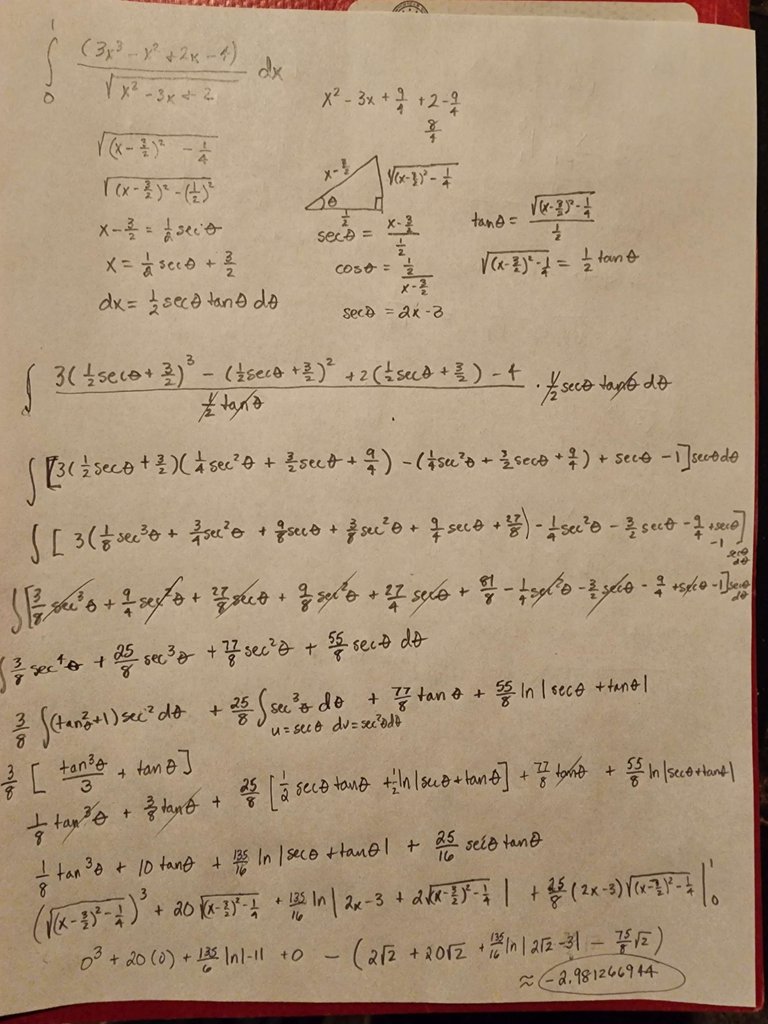 ∫₀¹ (3x³ - x² + 2x - 4) / √(x² - 3x + 2) dx
x² - 3x + 9/4 + 2 - 9/4
8/4
√((x - 3/2)² - 1/4)
√((x - 3/2)² - (1/2)²)
x - 3/2 = 1/2 secθ
x = 1/2 secθ + 3/2
dx = 1/2 secθ tanθ dθ
x - 3/2
√((x - 3/2)² - 1/4)
θ
1/2
secθ = (x - 3/2) / (1/2)
cosθ = (1/2) / (x - 3/2)
secθ = 2x - 3
tanθ = √((x - 3/2)² - 1/4) / (1/2)
√((x - 3/2)² - 1/4) = 1/2 tanθ
∫ [3(1/2 secθ + 3/2)³ - (1/2 secθ + 3/2)² + 2(1/2 secθ + 3/2) - 4] / (1/2 tanθ) · 1/2 secθ tanθ dθ
∫ [3(1/2 secθ + 3/2)(1/4 sec²θ + 3/2 secθ + 9/4) - (1/4 sec²θ + 3/2 secθ + 9/4) + secθ - 1] secθ dθ
∫ [3(1/8 sec³θ + 3/4 sec²θ + 9/8 secθ + 3/8 sec²θ + 9/4 secθ + 27/8) - 1/4 sec²θ - 3/2 secθ - 9/4 + secθ - 1] secθ dθ
∫ [3/8 sec³θ + 9/4 sec²θ + 27/8 secθ + 9/8 sec²θ + 27/4 secθ + 81/8 - 1/4 sec²θ - 3/2 secθ - 9/4 + secθ - 1] secθ dθ
∫ 3/8 sec⁴θ + 25/8 sec³θ + 77/8 sec²θ + 55/8 secθ dθ
3/8 ∫(tan²θ + 1) sec² dθ + 25/8 ∫ sec³θ dθ + 77/8 tanθ + 55/8 ln|secθ + tanθ|
u = secθ dv = sec²θdθ
3/8 [tan³θ/3 + tanθ]
1/8 tan³θ + 3/8 tanθ + 25/8 [1/2 secθ tanθ + 1/2 ln|secθ + tanθ|] + 77/8 tanθ + 55/8 ln|secθ + tanθ|
1/8 tan³θ + 10 tanθ + 135/16 ln|secθ + tanθ| + 25/16 secθ tanθ
(√((x - 3/2)² - 1/4))³ + 20√((x - 3/2)² - 1/4) + 135/16 ln|2x - 3 + 2√((x - 3/2)² - 1/4)| + 25/8 (2x - 3)√((x - 3/2)² - 1/4) |₀¹
0³ + 20(0) + 135/6 ln|-1| + 0 - (2√2 + 20√2 + 135/16 ln|2√2 - 3| - 75/8 √2)
≈ -2.981266944